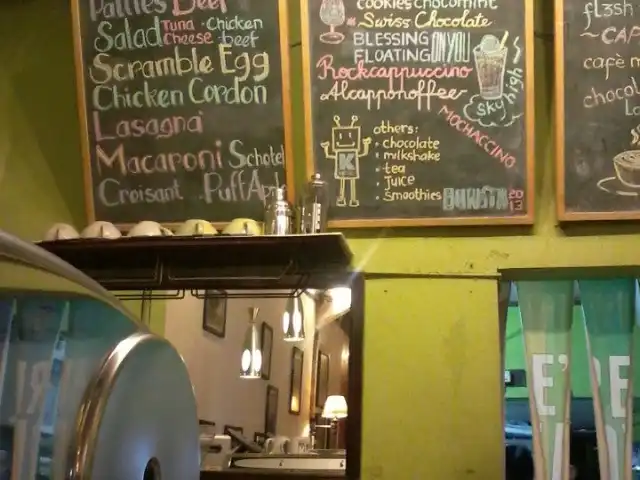 Patties Beef
Salad Tuna · Chicken
Cheese · beef
Scramble Egg
Chicken Cordon
Lasagna
Macaroni Schotel
Croisant . Puff
cookies chocomint
Swiss Chocolate
BLESSING
FLOATING ON YOU
Rockcappuccino
Alcapponoffee
sky high
MOCHACCINO
K
others:
• chocolate
• milkshake
• tea
• juice
• smoothies
2013
caffè